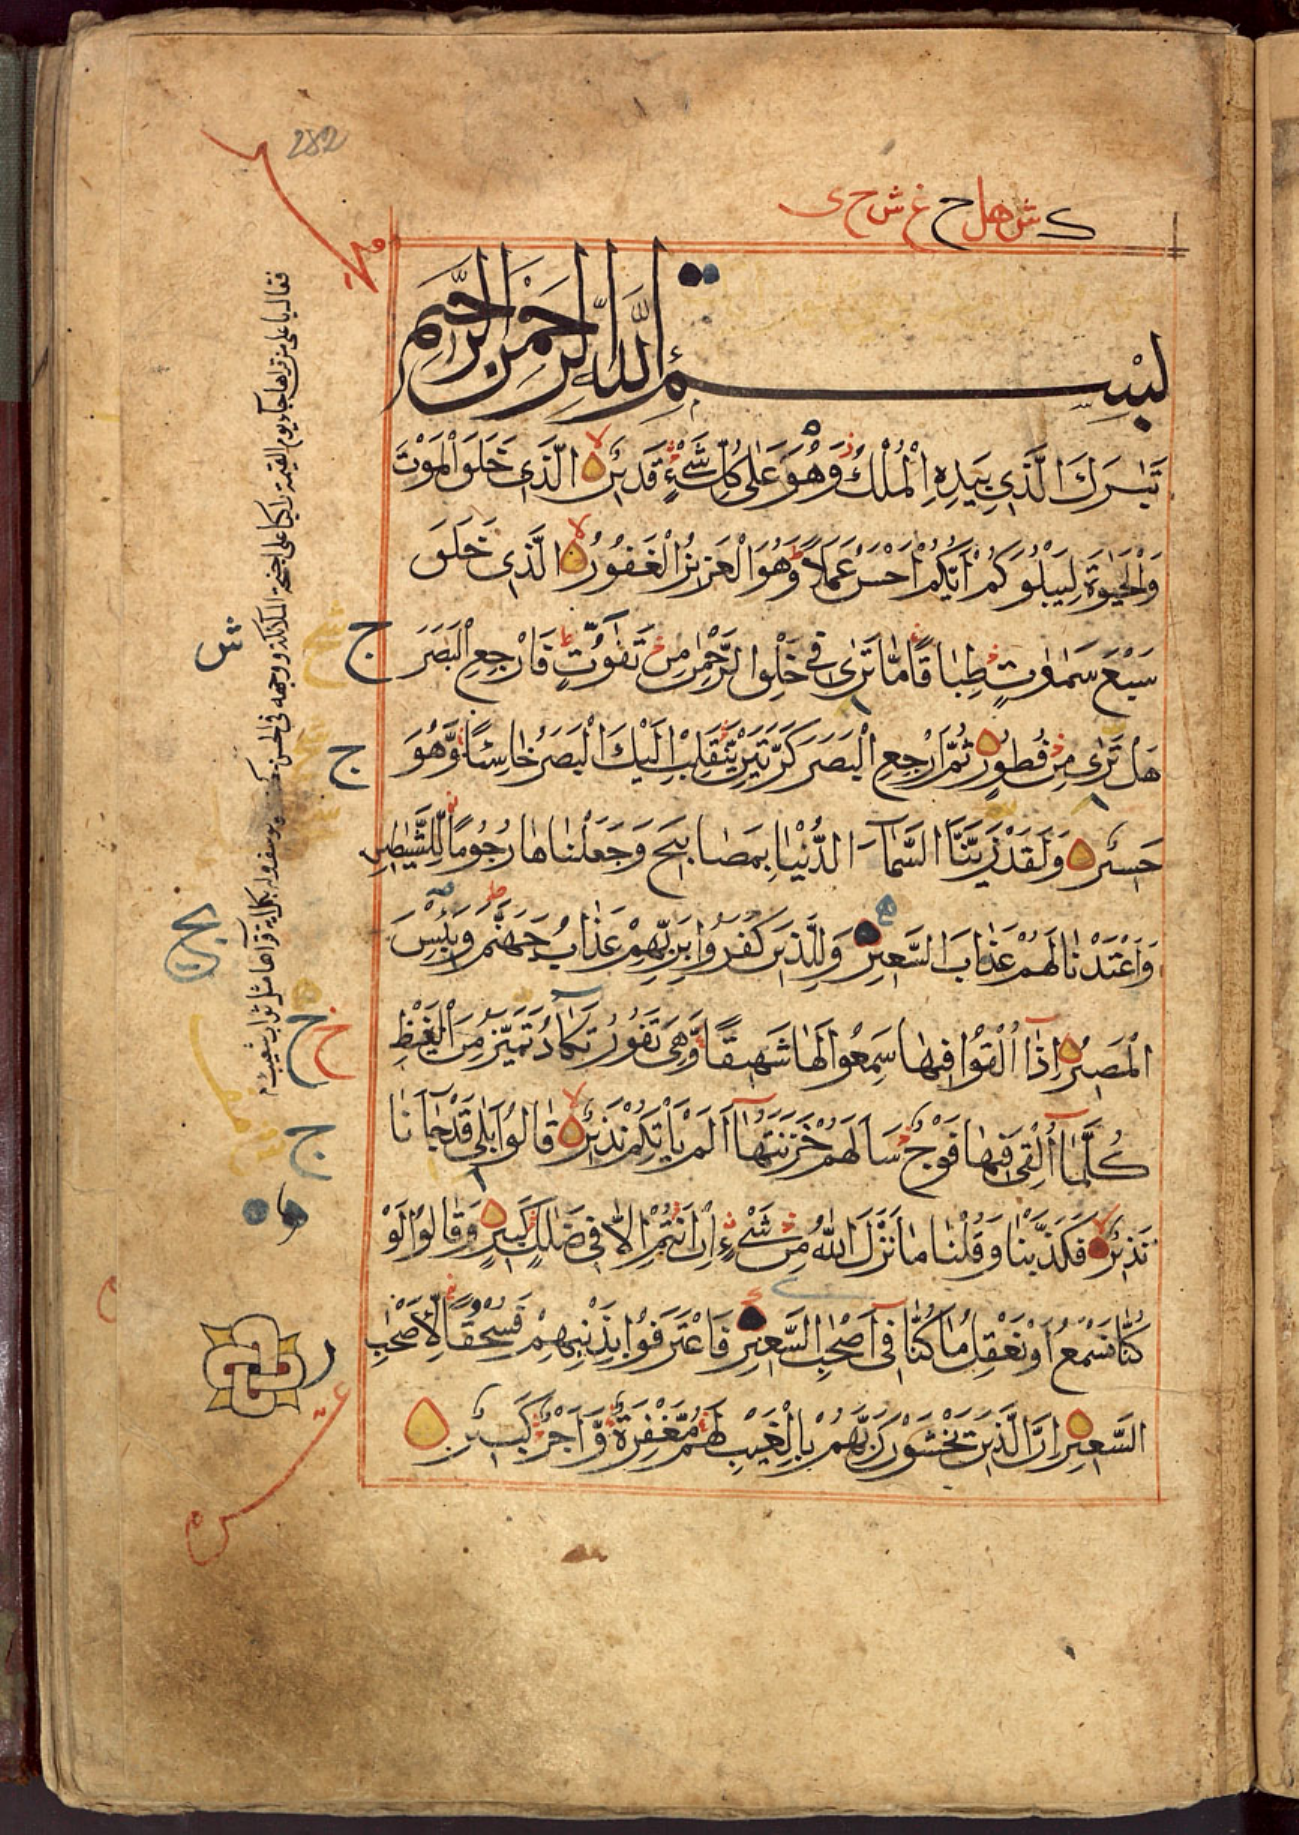 282
ک ش هل ح غ ش ح ى
بِسْمِ اللهِ الرَّحْمٰنِ الرَّحِيْمِ
تَبٰرَكَ الَّذِي بِيَدِهِ الْمُلْكُ وَهُوَ عَلٰى كُلِّ شَيْءٍ قَدِيْرٌ الَّذِي خَلَقَ الْمَوْتَ
وَالْحَيٰوةَ لِيَبْلُوَكُمْ اَيُّكُمْ اَحْسَنُ عَمَلًا وَهُوَ الْعَزِيْزُ الْغَفُوْرُ الَّذِي خَلَقَ
سَبْعَ سَمٰوٰتٍ طِبَاقًا مَّا تَرٰى فِي خَلْقِ الرَّحْمٰنِ مِنْ تَفٰوُتٍ فَارْجِعِ الْبَصَرَ
هَلْ تَرٰى مِنْ فُطُوْرٍ ثُمَّ ارْجِعِ الْبَصَرَ كَرَّتَيْنِ يَنْقَلِبْ اِلَيْكَ الْبَصَرُ خَاسِئًا وَّهُوَ
حَسِيْرٌ وَلَقَدْ زَيَّنَّا السَّمَآءَ الدُّنْيَا بِمَصَابِيْحَ وَجَعَلْنَاهَا رُجُوْمًا لِّلشَّيٰطِيْنِ
وَاَعْتَدْنَا لَهُمْ عَذَابَ السَّعِيْرِ وَلِلَّذِيْنَ كَفَرُوْا بِرَبِّهِمْ عَذَابُ جَهَنَّمَ وَبِئْسَ
الْمَصِيْرُ اِذَا اُلْقُوْا فِيْهَا سَمِعُوْا لَهَا شَهِيْقًا وَّهِيَ تَفُوْرُ تَكَادُ تَمَيَّزُ مِنَ الْغَيْظِ
كُلَّمَا اُلْقِيَ فِيْهَا فَوْجٌ سَاَلَهُمْ خَزَنَتُهَا اَلَمْ يَاْتِكُمْ نَذِيْرٌ قَالُوْا بَلٰى قَدْ جَآءَنَا
نَذِيْرٌ فَكَذَّبْنَا وَقُلْنَا مَا نَزَّلَ اللهُ مِنْ شَيْءٍ اِنْ اَنْتُمْ اِلَّا فِي ضَلٰلٍ كَبِيْرٍ وَقَالُوْا لَوْ
كُنَّا نَسْمَعُ اَوْ نَعْقِلُ مَا كُنَّا فِي اَصْحٰبِ السَّعِيْرِ فَاعْتَرَفُوْا بِذَنْبِهِمْ فَسُحْقًا لِّاَصْحٰبِ
السَّعِيْرِ اِنَّ الَّذِيْنَ يَخْشَوْنَ رَبَّهُمْ بِالْغَيْبِ لَهُمْ مَّغْفِرَةٌ وَّاَجْرٌ كَبِيْرٌ
ش
ج
ج
ج